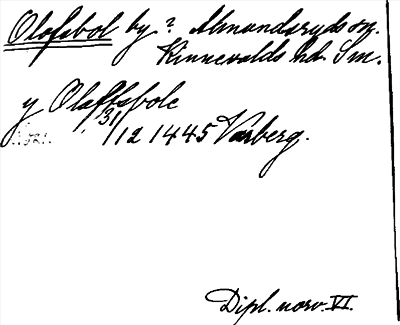 Olofsbol by? Almundsryds sn.
Kinnevalds hd. Sm.
y Olaffsbole
31/12 1445 Varberg.
Dipl. norv. VI.